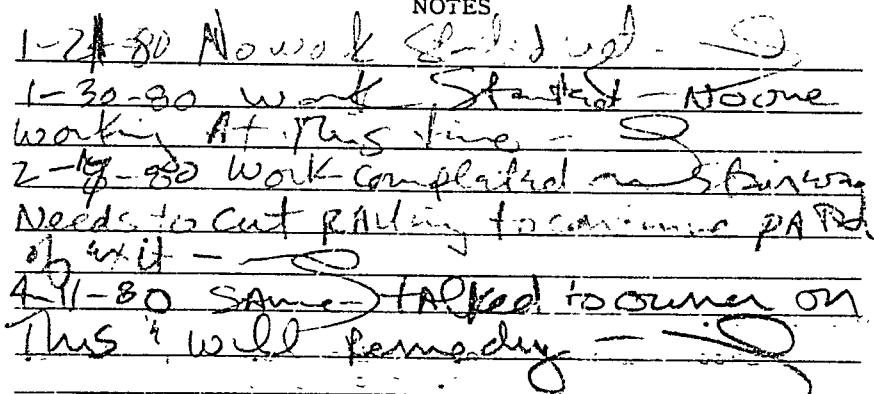 NOTES
1-24-80 No work Started yet -
1-30-80 Work Started - No one
working At This time -
2-80 Work completed on Stairway
Needs to cut RAiling to continue pATh
of exit -
4-11-80 SAme - tAlked to owner on
This & will Remedy -